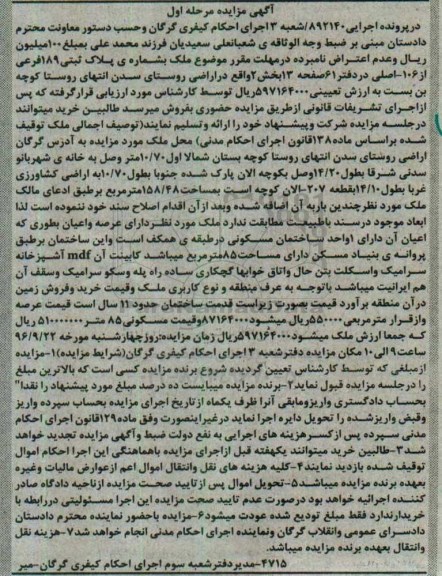 آگهی مزایده مرحله اول
درپرونده اجرایی۸۹۲۱۴۰/شعبه ۳اجرای احکام کیفری گرگان وحسب دستور معاونت محترم
دادستان مبنی بر ضبط وجه الوثاقه ی شعبانعلی سعیدیان فرزند محمد علی بمبلغ۱۰۰میلیون
ریال وعدم اعتراض نامبرده درمهلت مقرر موضوع ملک بشماره ی پلاک ثبتی۱۸۹فرعی
از۱۰۶-اصلی دردفتر۶۱صفحه ۱۳بخش۲واقع دراراضی روستای سدن انتهای روستا کوچه
بن بست به ارزش تعیینی۵۹۷۱۶۴۰۰۰ریال توسط کارشناس مورد ارزیابی قرارگرفته که پس
ازاجرای تشریفات قانونی ازطریق مزایده حضوری بفروش میرسد طالبین خرید میتوانند
درجلسه مزایده شرکت وپیشنهاد خود را ارائه وتسلیم نمایند(توصیف اجمالی ملک توقیف
شده براساس ماده۱۳۸قانون اجرای احکام مدنی) محل ملک مورد مزایده به آدرس گرگان
اراضی روستای سدن انتهای روستا کوچه بستان شمالا اول۱۰/۷۰متر وصل به خانه ی شهربانو
سدنی شرقا بطول۱۴/۲۰وصل بکوچه الان پارک شده جنوبا بطول۱۰/۷۰به اراضی کشاورزی
غربا بطول۱۴/۱۰بقطعه ۲۰۷-الان کوچه است بمساحت۱۵۸/۴۸مترمربع برطبق ادعای مالک
ملک مورد نظرچندین باربه آن اضافه شده وبعد ازآن اقدام اصلاح سند خود ننموده است لذا
ابعاد موجود درسند باطبیعت مطابقت ندارد ملک مورد نظردارای عرصه واعیان بطوری که
اعیان آن دارای ۱واحد ساختمان مسکونی درطبقه ی همکف است واین ساختمان برطبق
پروانه ی بنیاد مسکن دارای مساحت۸۵مترمربع میباشد کابینت آن mdf آشپزخانه
سرامیک واسکلت بتن حال واتاق خوابها گچکاری ساده راه پله وسکو سرامیک وسقف آن
هم ایرانیت میباشد باتوجه به عرف منطقه و نوع کاربری ملک وقیمت خرید وفروش زمین
درآن منطقه برآورد قیمت بصورت زیراست قدمت ساختمان حدود ۱۱ سال است قیمت عرصه
وازقرار مترمربعی۵۵۰۰۰۰ریال میشود۸۷۱۶۴۰۰۰وقیمت مسکونی۸۵ متر ۵۱۰۰۰۰۰۰۰ ریال
که جمعا ارزش ملک میشود۵۹۷۱۶۴۰۰۰ریال زمان مزایده:روزچهارشنبه مورخه ۹۶/۹/۲۲
ساعت۹ الی۱۰ مکان مزایده دفترشعبه ۳اجرای احکام کیفری گرگان(شرایط مزایده)۱-مزایده
ازمبلغی که توسط کارشناس تعیین گردیده شروع برنده مزایده کسی است که بالاترین مبلغ
را درجلسه مزایده قبول نماید۲-برنده مزایده میبایست ده درصد مبلغ مورد پیشنهاد را نقدا"
بحساب دادگستری واریزومابقی آنرا ظرف یکماه ازتاریخ اجرای مزایده بحساب سپرده واریز
وقبض واریزشده را تحویل دایره اجرا نماید درغیراینصورت وفق ماده۱۲۹قانون اجرای احکام
مدنی سپرده پس ازکسرهزینه های اجرایی به نفع دولت ضبط وآگهی مزایده تجدید خواهد
شد۳-طالبین خرید میتوانند یکهفته قبل ازاجرای مزایده باهماهنگی این اجرا احکام اموال
توقیف شده بازدید نمایند۴-کلیه هزینه های نقل وانتقال اموال اعم ازعوارض مالیات وغیره
بعهده برنده مزایده میباشد۵-تحویل اموال پس ازتایید صحت مزایده ازناحیه دادگاه صادر
کننده اجرائیه خواهد بود درصورت عدم تایید صحت مزایده این اجرا مسئولیتی دررابطه با
خریدارندارد فقط مبلغ تودیع شده عودت میشود۶-مزایده باحضور نماینده محترم دادستان
دادسرای عمومی وانقلاب گرگان ونماینده اجرای احکام مدنی انجام خواهد شد۷-هزینه نقل
وانتقال بعهده برنده مزایده میباشد.
۴۷۱۵-مدیردفترشعبه سوم اجرای احکام کیفری گرگان-میر